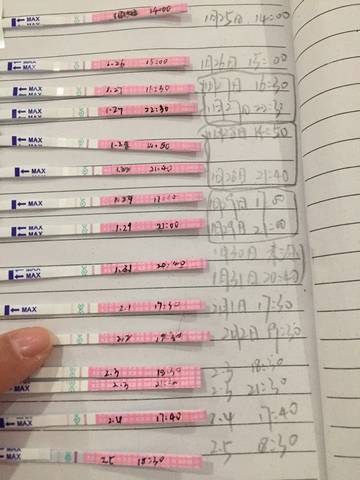 MAX 14:00 1月25日 14:00
MAX 1.26 15:00 1月26日 15:00
MAX 1.27 16:30 1月27日 16:30
MAX 1.27 22:30 1月27日 22:30
MAX 1.28 14:50 1月28日 14:50
MAX 21:40 1月28日 21:40
MAX 1.29 17:00 1月29日 17:00
MAX 1.29 21:00 1月29日 21:00
1月30日
MAX 1.31 20:40 1月31日 20:40
MAX 2.1 17:30 2月1日 17:30
2.2 19:30 2月2日 19:30
2.3 18:30 2.3 18:30
2.3 21:30 2.3 21:30
MAX 2.4 17:40 2.4 17:40
MAX 2.5 18:30 2.5 18:30